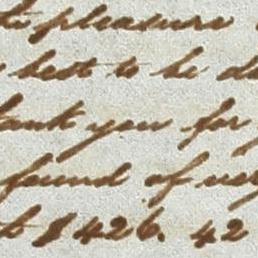 the pleasure
best to be
thank you for
found of
$426. 42